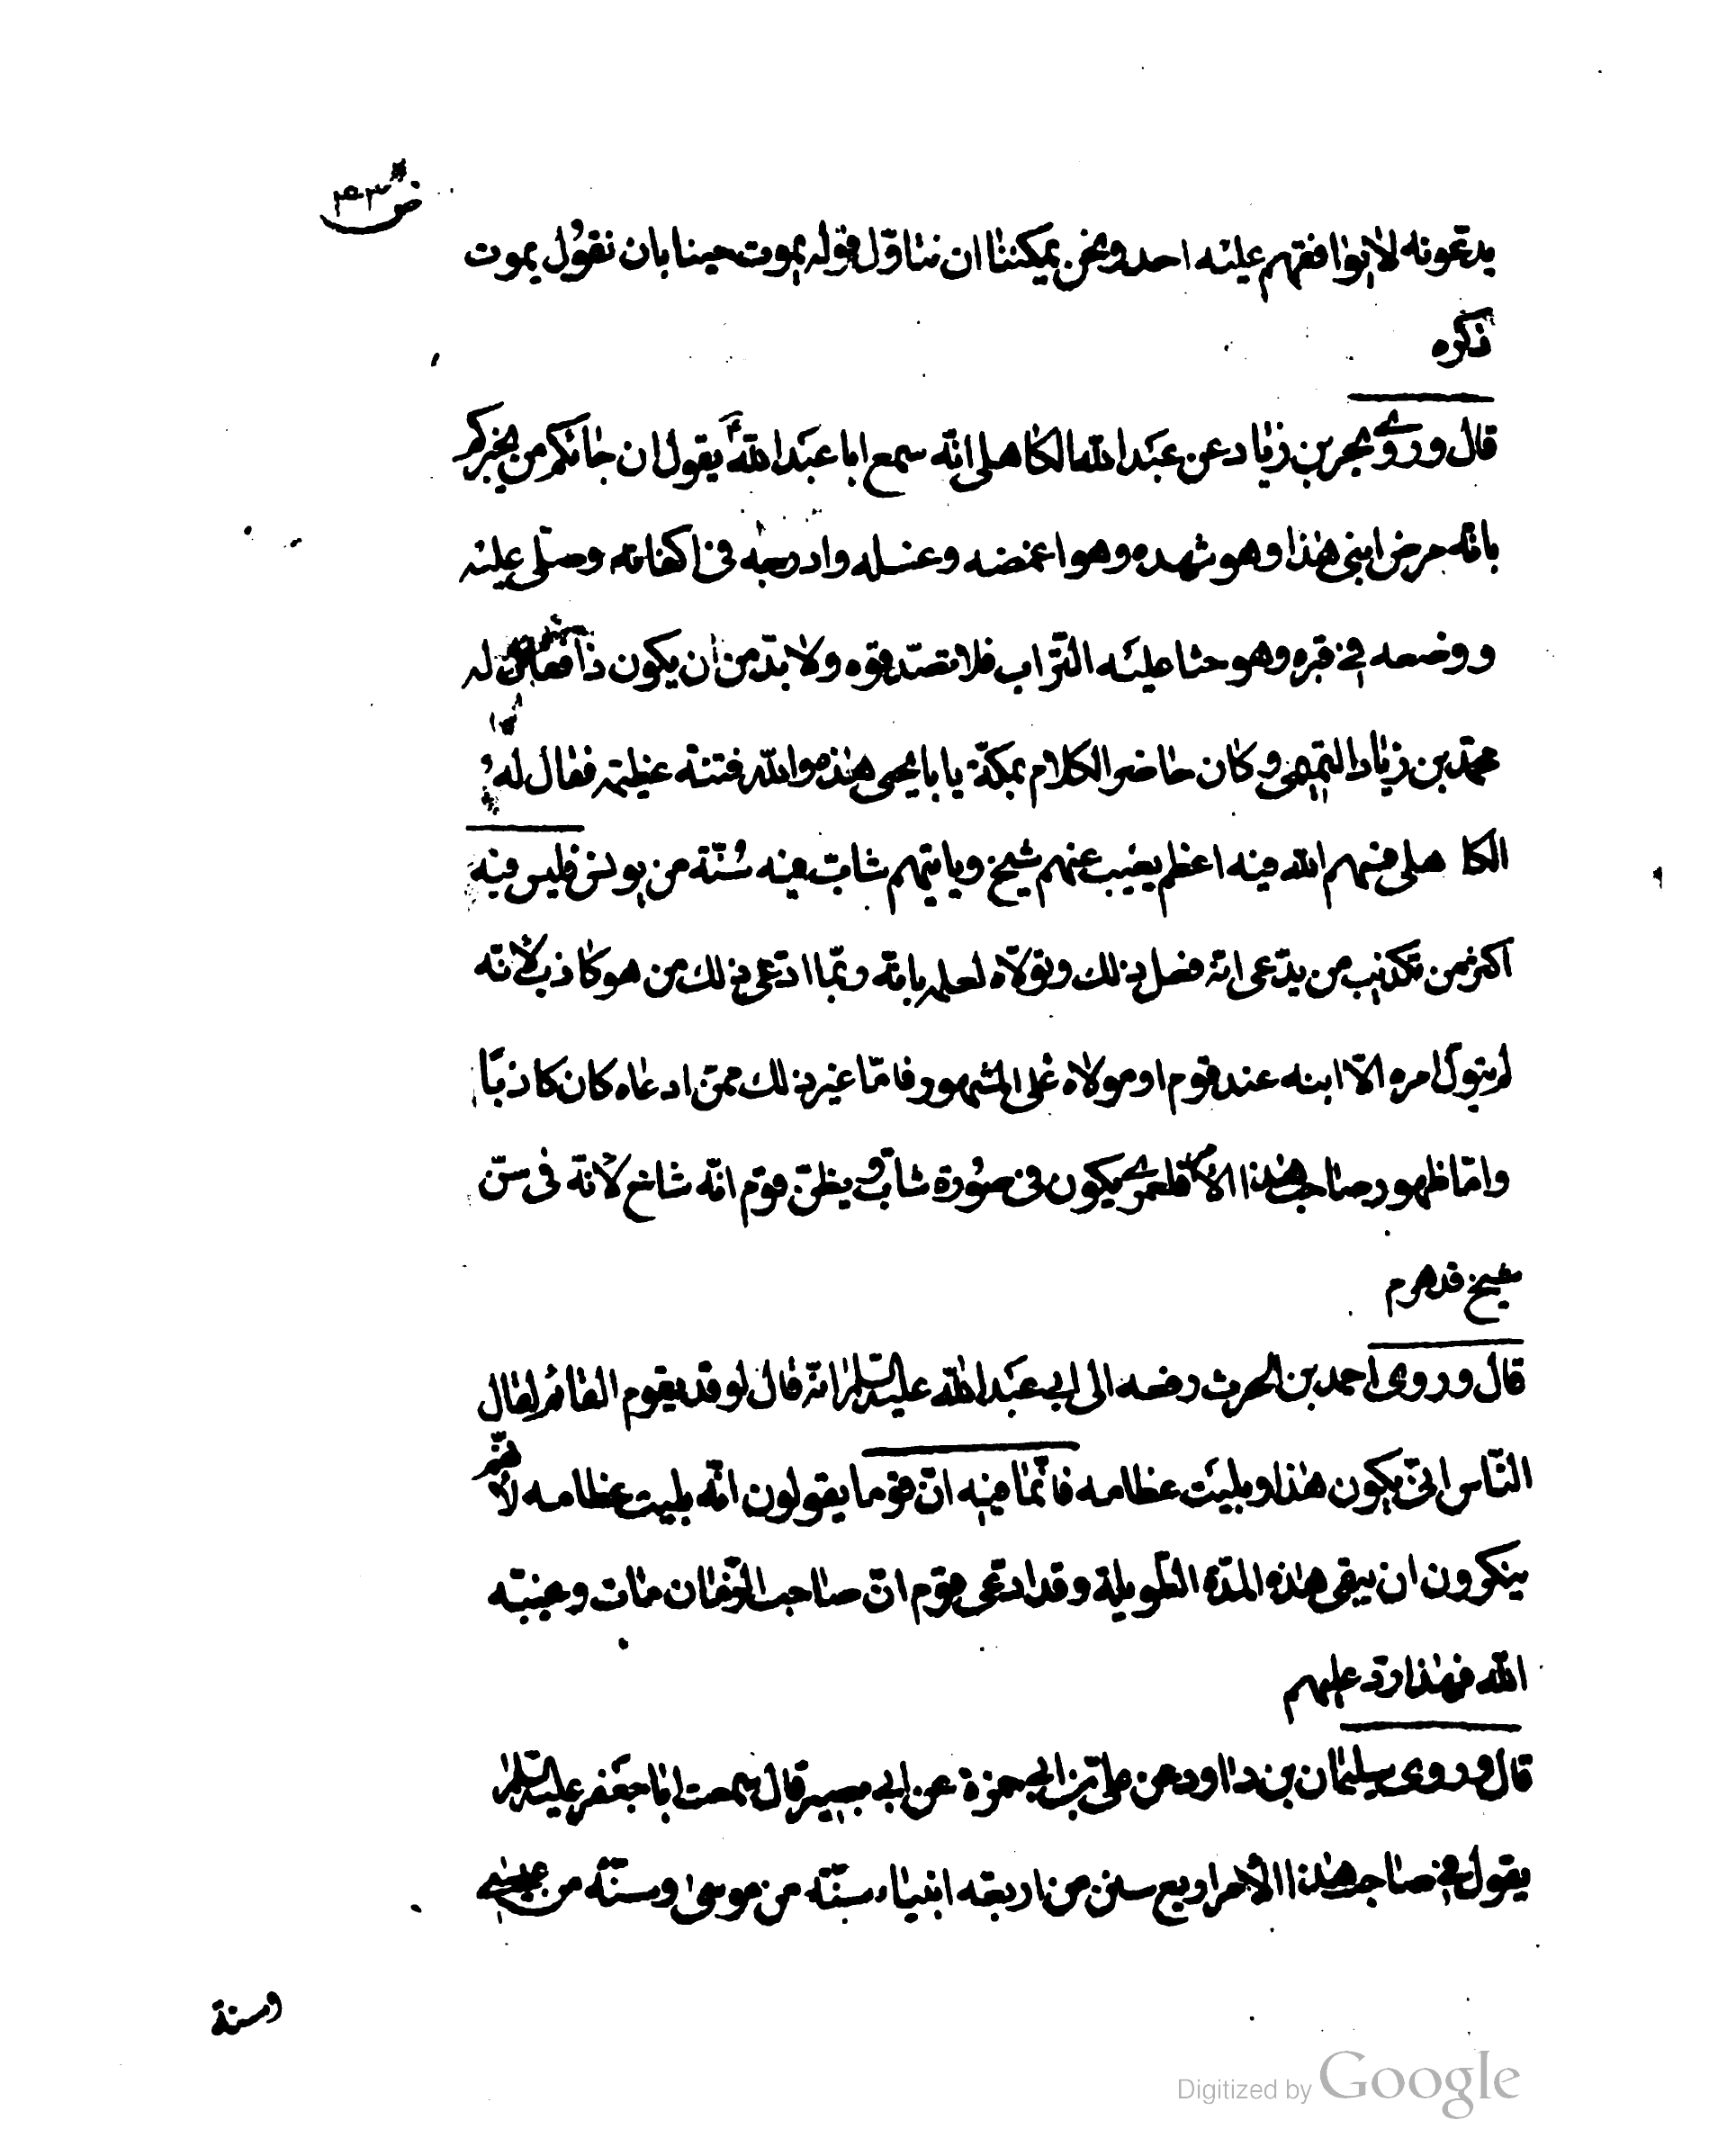 يدعونه لا يوافقهم عليه احد ونحن يمكننا ان نتاول قوله يموت حينا بان نقول يموت
ذكره
قال وروى بحر بن زياد عن عبد الله الكاهلى انه سمع ابا عبد الله ع يقول ان جائكم من يخبركم
بانه مرض ابنى هذا وهو شهده وهو اغمضه وغسله وادرجه فى اكفانه وصلى عليه
ووضعه فى قبره وهو حثا عليه التراب فلا تصدقوه ولا بد من ان يكون ذا فقال له
محمد بن زياد التميمى وكان حاضر الكلام بمكة يا با يحيى هذه والله فتنة عظيمة فقال له
الكاهلى فسهم الله فيه اعظم يغيب عنهم شيخ وياتيهم شاب فيه سنة من يونس فليس فيه
اكثر من تكذيب من يدعى انه فعل ذلك وتولاه لعلمه بانه ربما ادعى ذلك من هو كاذب لانه
لم يتول امره الا ابنه عند قوم او مولاه على المشهور فاما غير ذلك ممن ادعاه كان كاذبا
واما ظهور صاحب هذا الامر فلعمرى يكون فى صورة شاب ويظن قوم انه شاخ لانه فى سن
شيخ قد هرم
قال وروى احمد بن الحرث رفعه الى ابى عبد الله عليه السلم انه قال لو قد يقوم القائم لقال
الناس انى يكون هذا وبليت عظامه فانما فيه ان قوما يقولون انه بليت عظامه لانهم
ينكرون ان يبقى هذه المدة الطويلة وقد ادعى قوم ان صاحب الزمان مات وغيبه
الله فهذا رد عليهم
قال وروى سليمان بن داود عن على بن ابى حمزة عن ابى بصير قال سمعت ابا جعفر عليه السلم
يقول فى صاحب هذا الامر اربع سنن من اربعة انبياء سنة من موسى وسنة من عيسى
وسنة
Digitized by Google